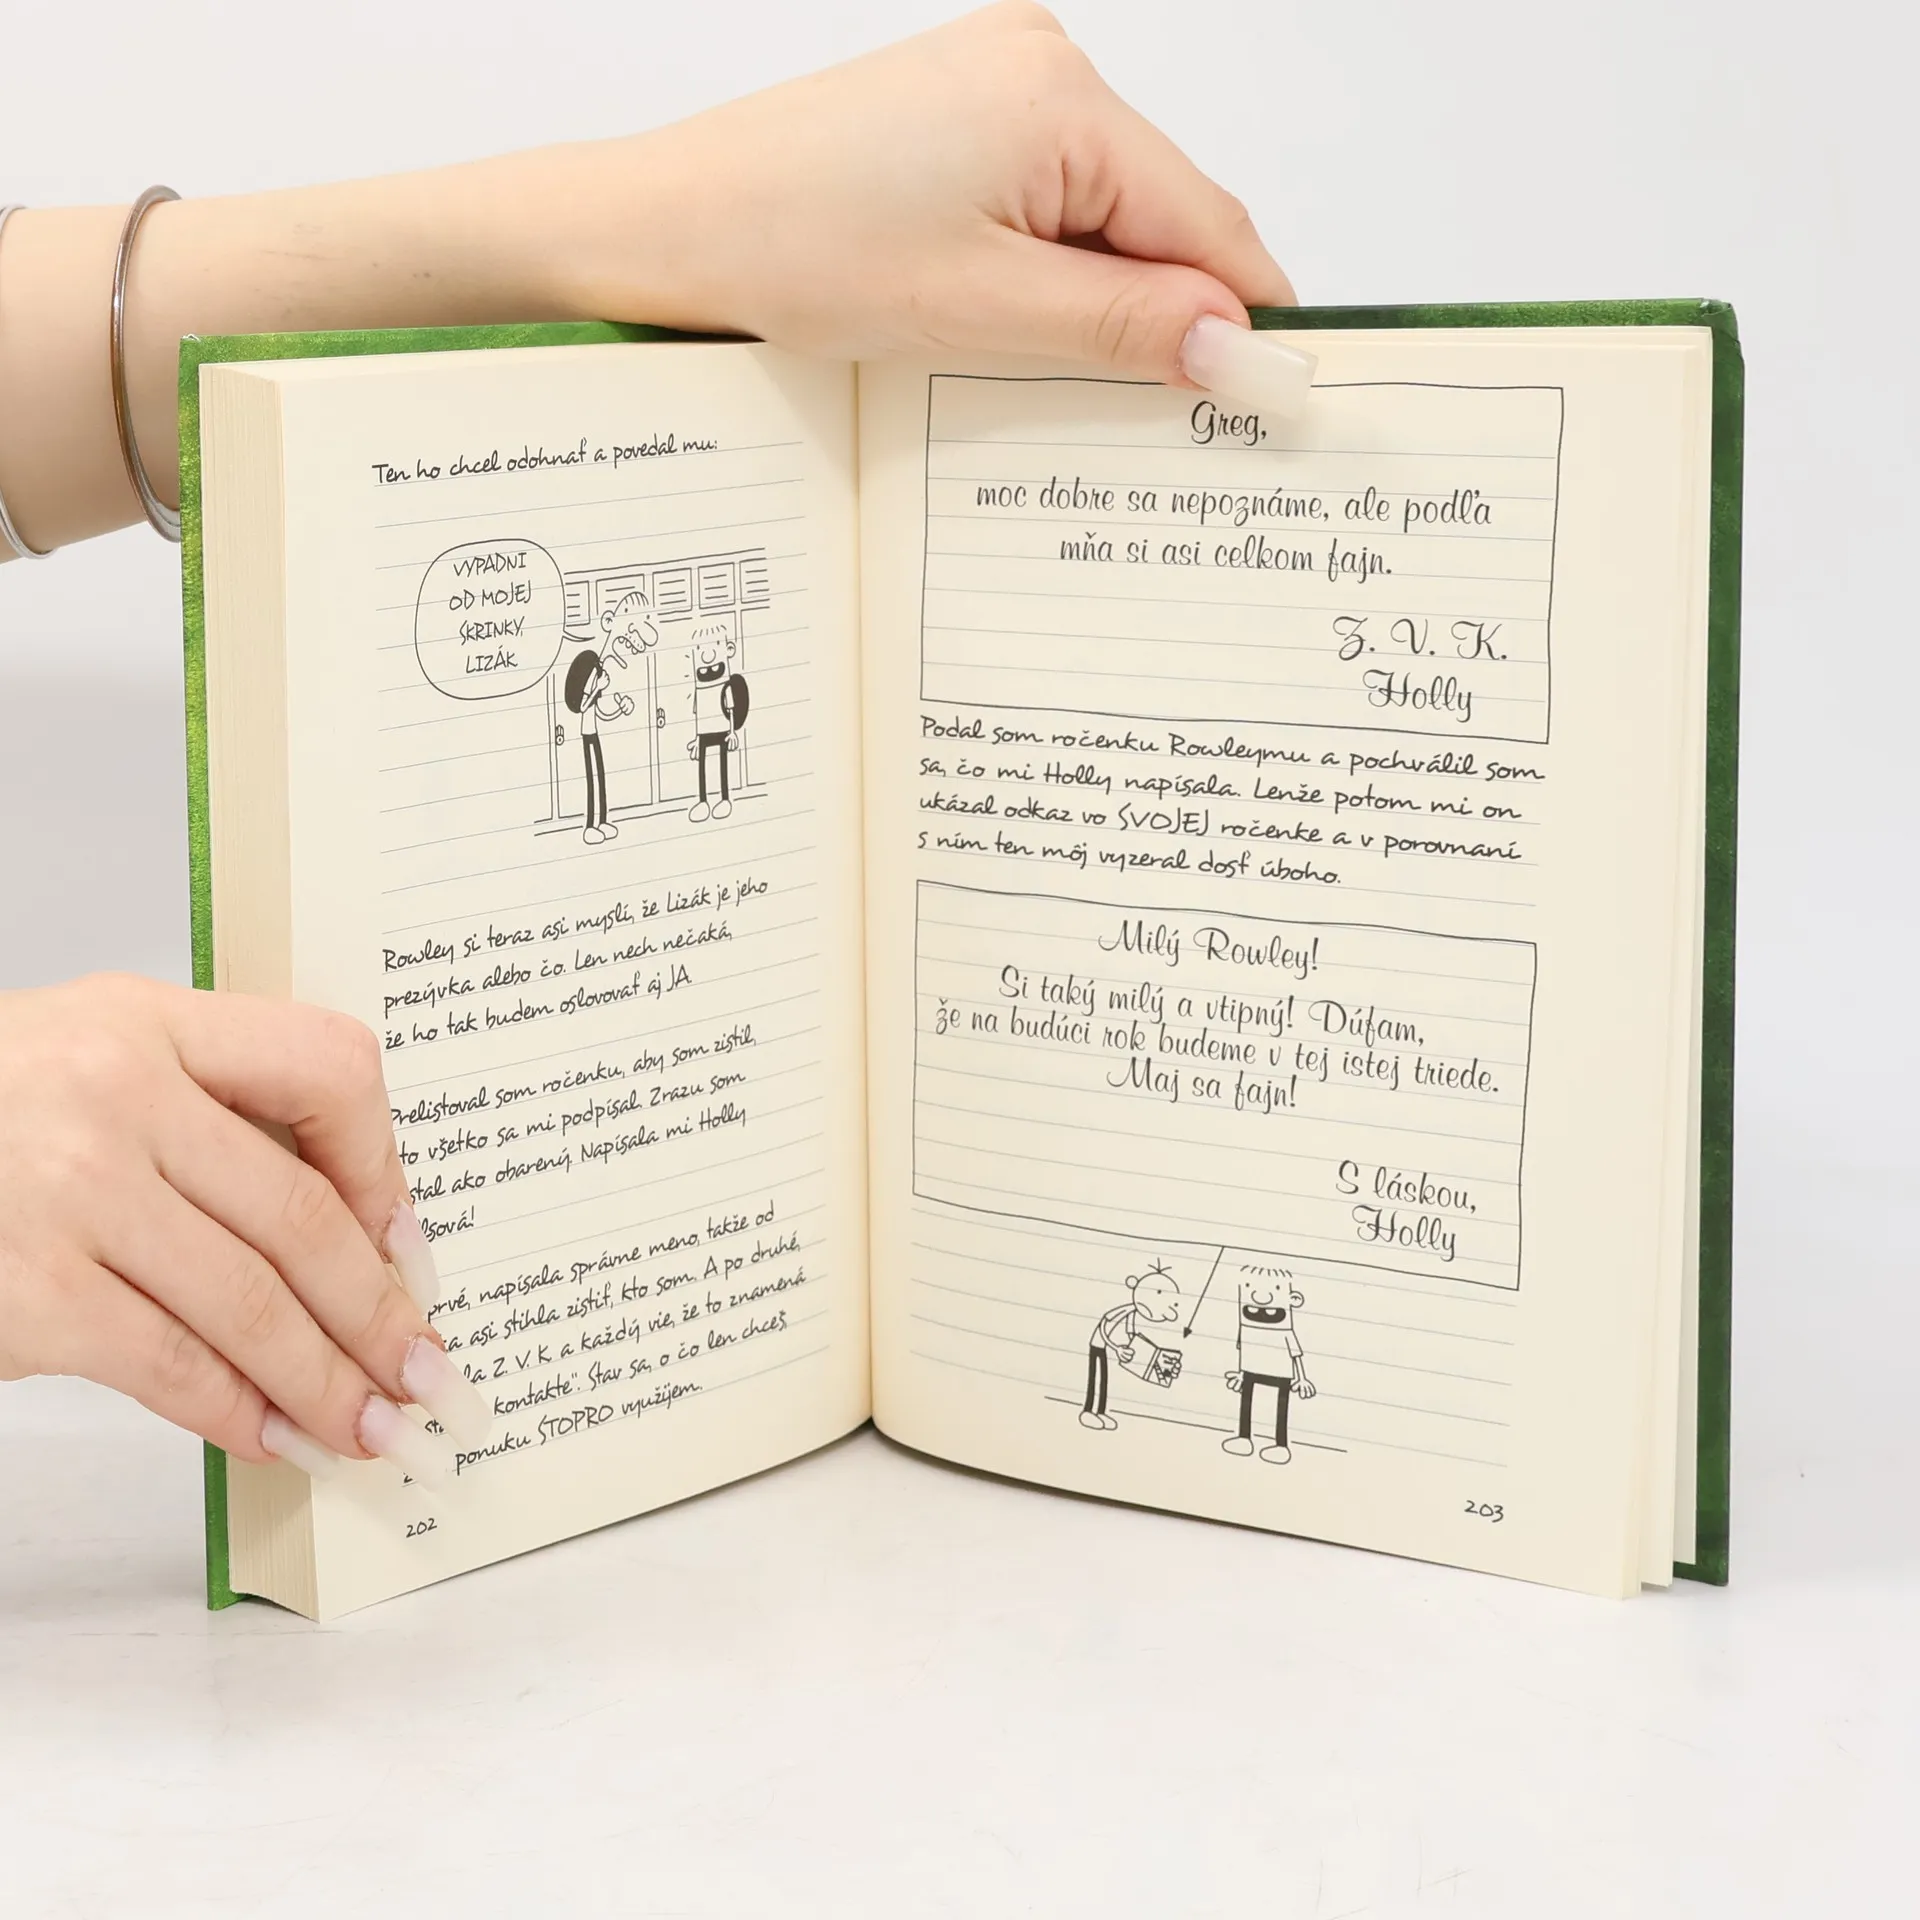 Ten ho chcel odohnať a povedal mu:
VYPADNI
OD MOJEJ
SKRINKY,
LIZÁK
Rowley si teraz asi myslí, že Lizák je jeho
prezývka alebo čo. Len nech nečaká,
že ho tak budem oslovovať aj JA.
Prelistoval som ročenku, aby som zistil,
to všetko sa mi podpísal. Zrazu som
stal ako obarený. Napísala mi Holly
lsová!
prvé, napísala správne meno, takže od
a asi stihla zistiť, kto som. A po druhé,
la Z. V. K. a každý vie, že to znamená
kontakte". Stav sa, o čo len chceš,
ponuku STOPRO využijem.
202
Greg,
moc dobre sa nepoznáme, ale podľa
mňa si asi celkom fajn.
Z. V. K.
Holly
Podal som ročenku Rowleymu a pochválil som
sa, čo mi Holly napísala. Lenže potom mi on
ukázal odkaz vo SVOJEJ ročenke a v porovnaní
s ním ten môj vyzeral dosť úboho.
Milý Rowley!
Si taký milý a vtipný! Dúfam,
že na budúci rok budeme v tej istej triede.
Maj sa fajn!
S láskou,
Holly
203